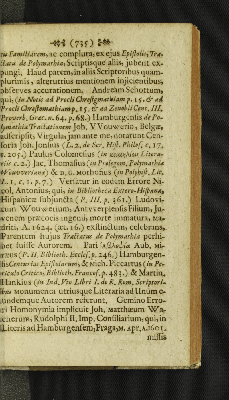 (735)
tu Familiarem, ac complura, ex ejus Epistolis, Tra-
ctatu de Polymathia, Scriptisque aliis, jubent ex-
pungi. Haud parem, in aliis Scriptoribus quam-
plurimis, alterutrius mentionem injicientibus,
observes accurationem. Andream Schottum
qui, (in Notis ad Procli Chrestomathiam p. 15. & ad
Procli Chrestomathiam p. 15. & ad Zenobii Cent. III.
Proverb. Græc. n. 64. p. 68.) Hamburgensis de Po-
lymathia Tractationem Joh. VVouwerio, Belgæ,
adscripsit, Virgula, jam ante me, notarunt Cen-
soria Joh. Jonsius (L. 2. de Scr. Hist. Philos. c. 17.
s. 205.) Paulus Colomesius (in
c. 2.) Jac. Thomasius (in Prolegom. Polymathiæ
Wowerianæ) & D. G. Morhofius (in Polyhist. Lit.
L. 1. c. 1. p. 7.) Versatur in eodem Errore Ni-
col. Antonius, qui, in Bibliotheca Extero-Hispana,
Hispanicæ subjuncta (P. III. p. 361.) Ludovi-
cum Wouwerium, Antverpiensis Filium, Ju-
venem præcocis ingenii, morte immatura, Ma-
driti, A. 1624. (æt. 16.) exstinctum, celebrans,
Parentem hujus Tractatus de Polymathia perhi-
bet fuisse Autorem. Pari Aub. Mi-
ræus (P. II. Biblioth. Eccles. p. 246.) Hamburgen-
sis Centurias Epistolarum, & Mich. Piccartus (in Pe-
riculis Criticis, Biblioth. Francof. p. 483.) & Martin.
Hankius (in Ind. Vio Libri I. de R. Rom. Scriptori-
bus) Monumenta utriusque Literaria ad Unum e-
undemque Autorem referunt. Gemino Erro-
ri Homonymia implicuit Joh. Matthæum Wa-
ckerum, Rudolphi II, Imp. Consiliarium, qui, in
Literis ad Hamburgensem, Praga, M. Apr. A. 1601.
missis